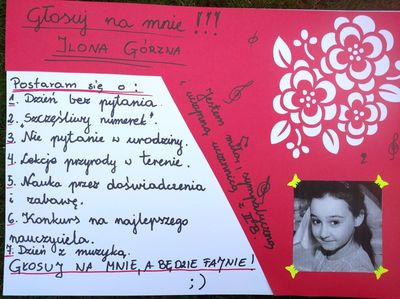 Głosuj na mnie!!!
Ilona Górzna
Postaram się o:
1. Dzień bez pytania.
2. „Szczęśliwy numerek".
3. „Nie pytanie w urodziny.
4. Lekcje przyrody w terenie.
5. Nauka przez doświadczenia
i zabawę.
6. Konkurs na najlepszego
nauczyciela.
7. Dzień z muzyką.
GŁOSUJ NA MNIE, A BĘDZIE FAJNIE!
;)
Jestem miłą, sympatyczną
i uczynną uczennicą z
III B.